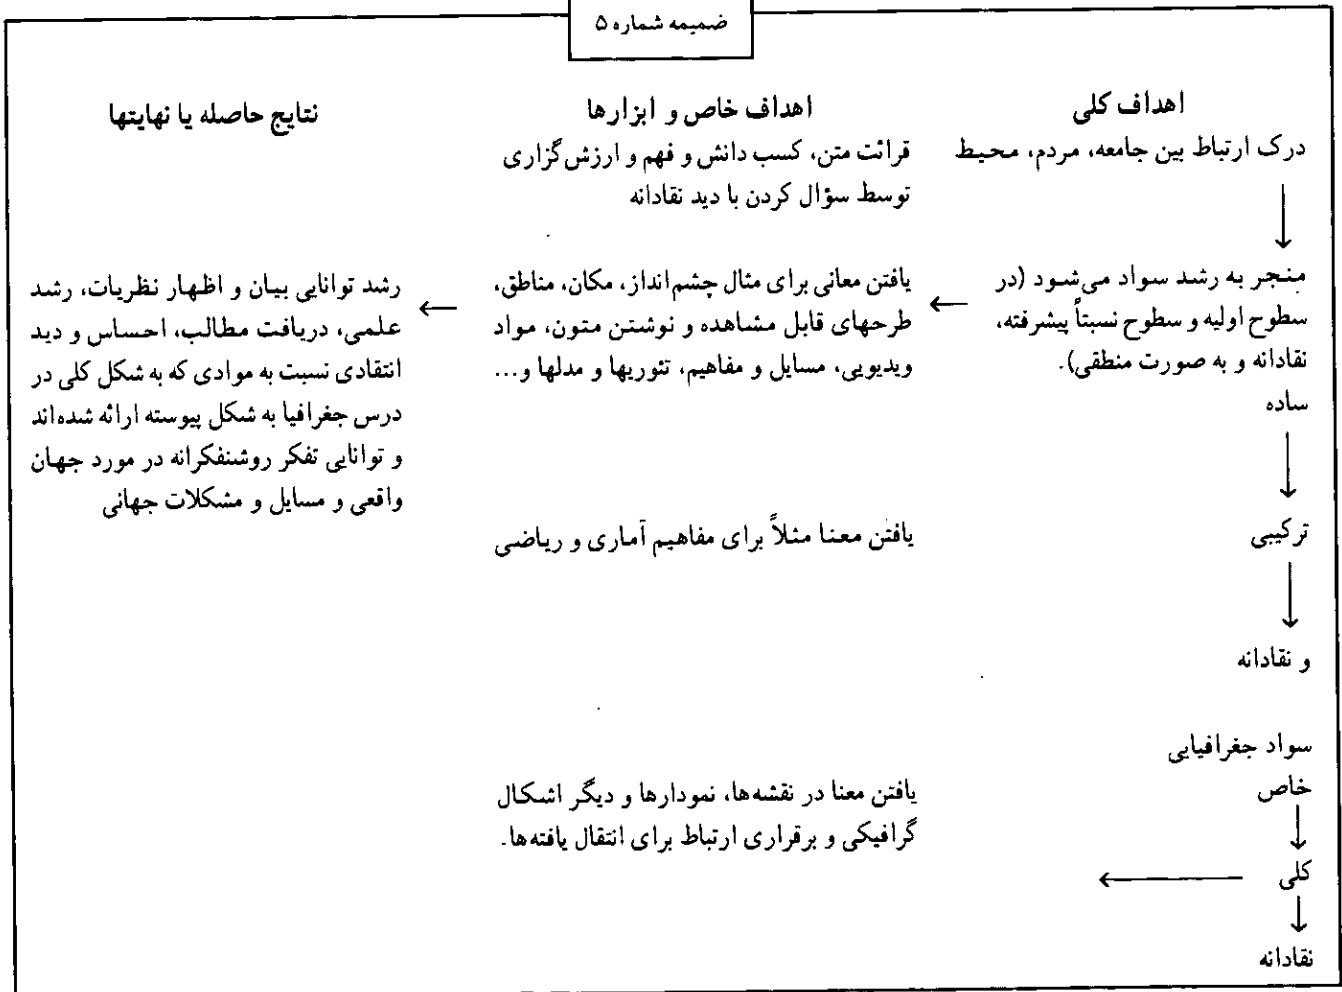 ضمیمه شماره ۵
اهداف کلی
درک ارتباط بین جامعه، مردم، محیط
↓
منجر به رشد سواد می‌شود (در
سطوح اولیه و سطوح نسبتاً پیشرفته،
نقادانه و به صورت منطقی).
ساده
↓
ترکیبی
↓
و نقادانه
سواد جغرافیایی
خاص
↓
کلی ←
↓
نقادانه
اهداف خاص و ابزارها
قرائت متن، کسب دانش و فهم و ارزش‌گزاری
توسط سؤال کردن با دید نقادانه
← یافتن معانی برای مثال چشم‌انداز، مکان، مناطق،
طرحهای قابل مشاهده و نوشتن متون، مواد
ویدیویی، مسایل و مفاهیم، تئوریها و مدلها و...
یافتن معنا مثلاً برای مفاهیم آماری و ریاضی
یافتن معنا در نقشه‌ها، نمودارها و دیگر اشکال
گرافیکی و برقراری ارتباط برای انتقال یافته‌ها.
نتایج حاصله یا نهایتها
← رشد توانایی بیان و اظهار نظریات، رشد
علمی، دریافت مطالب، احساس و دید
انتقادی نسبت به موادی که به شکل کلی در
درس جغرافیا به شکل پیوسته ارائه شده‌اند
و توانایی تفکر روشنفکرانه در مورد جهان
واقعی و مسایل و مشکلات جهانی